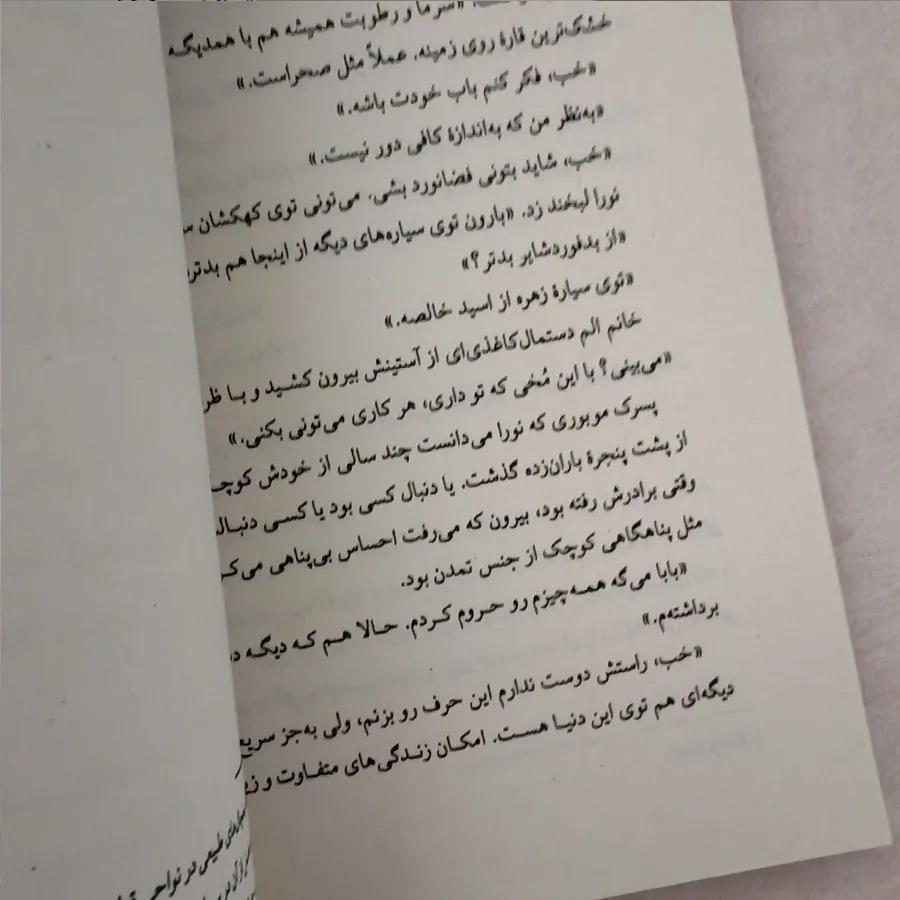 «سرما و رطوبت همیشه هم با همدیگه
خشک‌ترین قارهٔ روی زمینه. عملاً مثل صحراست.»
«خب، فکر کنم باب خودت باشه.»
«به‌نظر من که به‌اندازهٔ کافی دور نیست.»
«خب، شاید بتونی فضانورد بشی. می‌تونی توی کهکشان
نورا لبخند زد. «بارون توی سیاره‌های دیگه از اینجا هم بدتر
«از بدفوردشایر بدتر؟»
«توی سیارهٔ زهره از اسید خالصه.»
خانم الم دستمال‌کاغذی‌ای از آستینش بیرون کشید و بـا
«می‌بینی؟ با این مُخی که تو داری، هر کاری می‌تونی بکنی.»
پسرک موبوری که نورا می‌دانست چند سالی از خودش
از پشت پنجرهٔ باران‌زده گذشت. یا دنبال کسی بود یا کسـی
وقتی برادرش رفته بود، بیرون که می‌رفت احساس بی‌پناهی
مثل پناهگاهی کوچک از جنس تمدن بود.
«بابا می‌گه همـه‌چیزم رو حـروم کـردم. حـالا هـم کـه دیگـه
برداشته‌م.»
«خب، راستش دوست ندارم این حرف رو بزنم، ولی به‌جز
دیگه‌ای هم توی این دنیـا هسـت. امکـان زنـدگی‌هـای متفـاوت و
طبیعی در نواحی